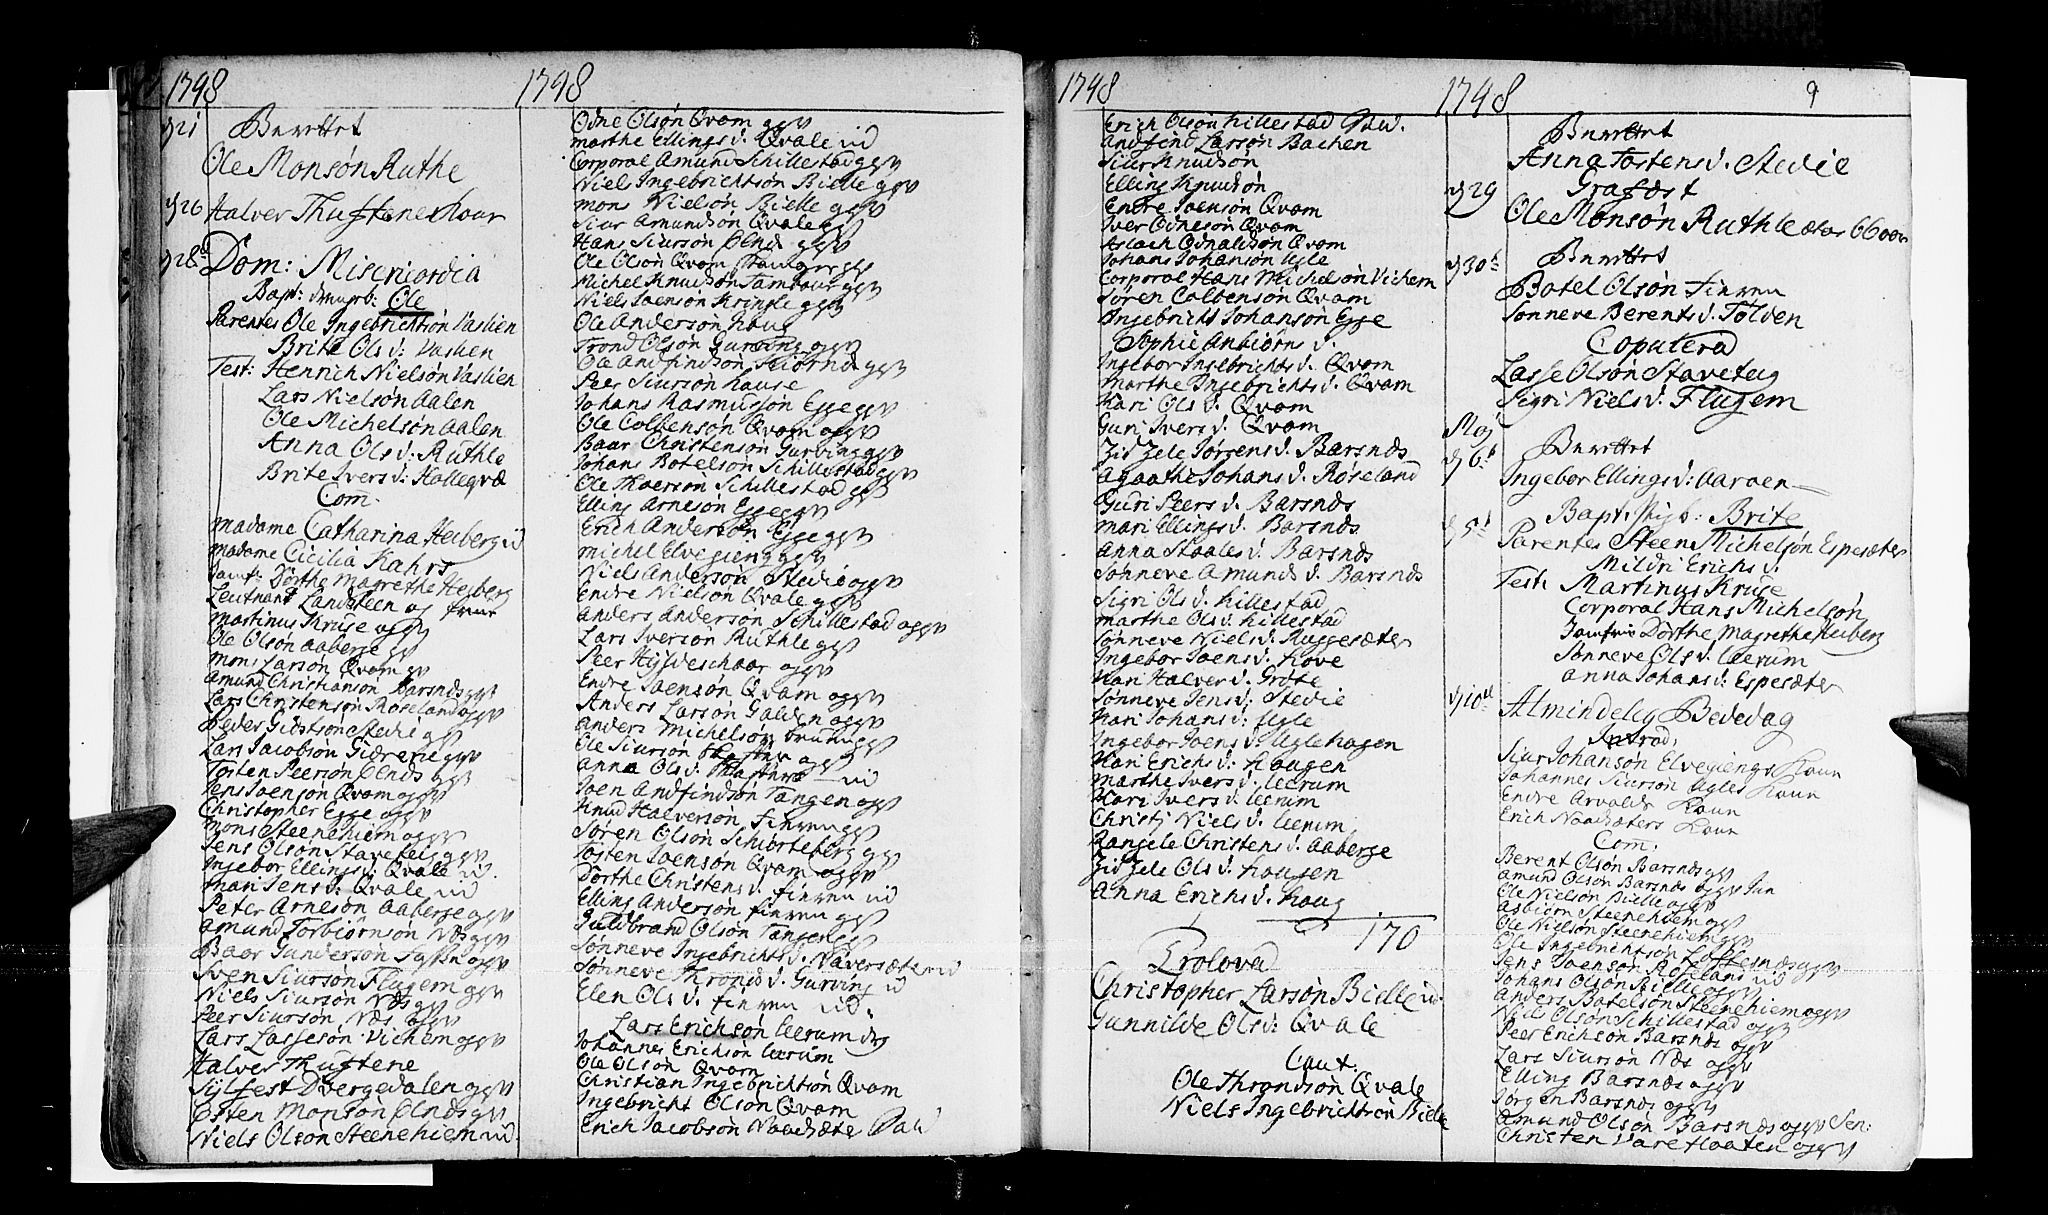 1798
1798
d 21 Berettet
Ole Monsøn Ruthe
d 26 Halver Thustene Kone
d 28 Dom: Misericordia
Bapt: Ole
Parentes Ole Ingebrichtsøn Vaslien
Brite Ols d: Vaslien
Test: Henrich Nielsøn Vaslien
Lars Nielsøn Aalen
Ole Michelsøn Aalen
Anna Ols d: Ruthle
Brite Ivers d: Hollegvæ
Com.
Madame Catharina Heiberg ud
Madame Cicilia Kahrs
Jomf: Dorthe Magrethe Heiberg
Leutnant Landsteen og frue
Martinus Kruse og gv
Ole Olsøn Aaberge gv
Mons Larsøn Qvam gv
Amund Christiansøn Barsnæs gv
Lars Christensøn Røseland og gv
Peder Stedie gv
Lars Jacobsøn gv
Tosten Peersøn Ølnes gv
Jens Joensøn Qvam og gv
Christopher Egge og gv
Mons Steenehiem og gv
Jens Olsøn Staveteig gv
Ingebor Ellings d: Qvale ud.
Mari Jens d: Qvale ud
Peter Arnesøn Aaberge og gv
Amund Torbiørnsøn Næs gv
Baar Gundersøn og gv
Sven Siursøn Flugem gv
Niels Siursøn Næs gv
Peer Siursøn Næs og gv
Lars Lassesøn Vichem og gv
Halver Thustene
Sylfest Dvergedalen og gv
Østen Monsøn Ølnes gv
Niels Olsøn Steenehiem ud.
Odne Olsøn Qvam gv
Marthe Ellings d. Qvale ud
Corporal Amund Schillestad gv
Niels Ingebrichtsøn Bielle gv
Mons Nielsøn Bielle gv
Siur Amundsøn Qvale gv
Hans Siursøn Ølnes gv
Ole Olsøn Qvam
Michel Knudsøn Tambour gv
Niels Joensøn Kringle gv
Ole Andersøn Haug
Trond Olsøn Gurving og gv
Ole Andfindsøn gv
Peer Siursøn Hause
Johans Rasmussøn Egge gv
Ole Colbensøn Qvam og gv
Baar Christensøn Gurving gv
Johans Botelsøn Schillestad gv
Ole Thoersøn Schillestad gv
Elling Arnesøn Egge gv
Erich Andersøn Egge gv
Michel Elvegieng gv
Niels Andersøn Stedie og gv
Endre Nielsøn Qvale gv
Anders Andersøn Schillestad og gv
Lars Iversøn Ruthle gv
Peer Hyldeschaar og gv
Endre Joensøn Qvam og gv
Anders Larsøn Galden og gv
Anders Michelsøn gv
Ole Siursøn og gv
Anna Ols d. ud
Joen Andfindsøn Tangen og gv
Knud Halversøn Finren gv
Søren Olsøn Schiørteberg gv
Tosten Joensøn Qvam og gv
Dorthe Christens d. Finren ud
Elling Andersøn Finren gv
Guldbrand Olsøn Tangen gv
Sønneve Ingebrichts d. Naversæter ud
Sønneve Thronds d. Gurving ud
Elen Ols d. Finren ud.
Lars Erichsøn Leerum
Johannes Erichsøn Leerum
Ole Olsøn Qvam
Christian Ingebrichtsøn Qvam
Ingebricht Olsøn Qvam
Erich Jacobsøn Naachæter
1748
1748
9
Erich Olsøn Lillestad
Andfind Larsøn Bachen
Siur Knudsøn
Elling Knudsøn
Endre Joensøn Qvam
Iver Odnesøn Qvam
Aslach Odnaldsøn Qvam
Johans Johansøn Ugle
Corporal Hans Michelsøn Vichem
Søren Colbensøn Qvam
Ingebricht Johansøn Egge
Sophie Anbiørns d.
Ingebor Ingebrichts d. Qvam
Marthe Ingebrichts d. Qvam
Kari Ols d. Qvam
Guri Ivers d. Qvam
Zidzele Jørgens d. Barsnæs
Agaathe Johans d. Røseland
Guri Peers d. Barsnæs
Mari Ellings d. Barsnæs
Anna Staales d. Barsnæs
Sønneve Amunds d. Barsnæs
Sigri Ols d. Lillestad
Marthe Ols d. Lillestad
Sønneve Niels d. Ruggesæter
Ingebor Joens d. Hove
Kari Halver d. Grøte
Sønneve Jens d. Stedie
Kari Johans d. Ugle
Ingebor Joens d. Uglehagen
Kari Erichs d. Haugen
Marthe Ivers d. Leerum
Kari Ivers d. Leerum
Christj Niels d. Leerum
Rangele Christens d. Aaberge
Zidzele Ols d. Haugen
Anna Erichs d. Haug
170
Trolovad
Christopher Larsøn Bielle ud.
Gunnilde Ols d: Qvale
Caut:
Ole Throndsøn Qvale
Niels Ingebrichtsøn Bielle
Berettet
Anna Tostens d. Stedie
d 29 Grafæst
Ole Monsøn Ruthle ætat. 66 aar
d 30 Berettet
Botel Olsøn Finren
Sønneve Berents d. Tolven
Copulerad
Lasse Olsøn Staveteig
Sigri Niels d. Flugem
Maj
d 6 Berettet
Ingebor Ellings d: Aaroen
d 5 Bapt: Brite
Parentes Steen Michelsøn Espesæter
Mildri Erichs d.
Test: Martinus Kruse
Corporal Hans Michelsøn
Jomfru Dorthe Magrethe Heiberg
Sønneve Ols d. Leerum
Anna Johans d: Espesæter
d 10 Almindelig Bededag
Introd:
Siur Johansøn Elvegiengs Kone
Johannes Siursøn Ugles Kone
Endre Arvalds Kone
Erich Naachæters Kone
Com.
Berent Olsøn Barsnæs gv
Amund Olsøn Barsnæs og gv Jun
Ole Nielsøn Bielle og gv
Asbiørn Steenehiem og gv
Ole Nielsøn Steenehiem gv
Ole Ingebrichtsøn Loftesnæs og gv
Jens Joensøn Røseland ud
Johans Olsøn Bielle og gv
Anders Botelsøn Steenehiem og gv
Niels Olsøn Schillestad og gv
Peer Erichsøn Barsnæs og gv
Lars Siursøn Næs og gv
Elling Barsnæs og gv
Jørgen Barsnæs og gv
Amund Olsøn Barsnæs og gv Sen:
Christen Vareflaaten og gv